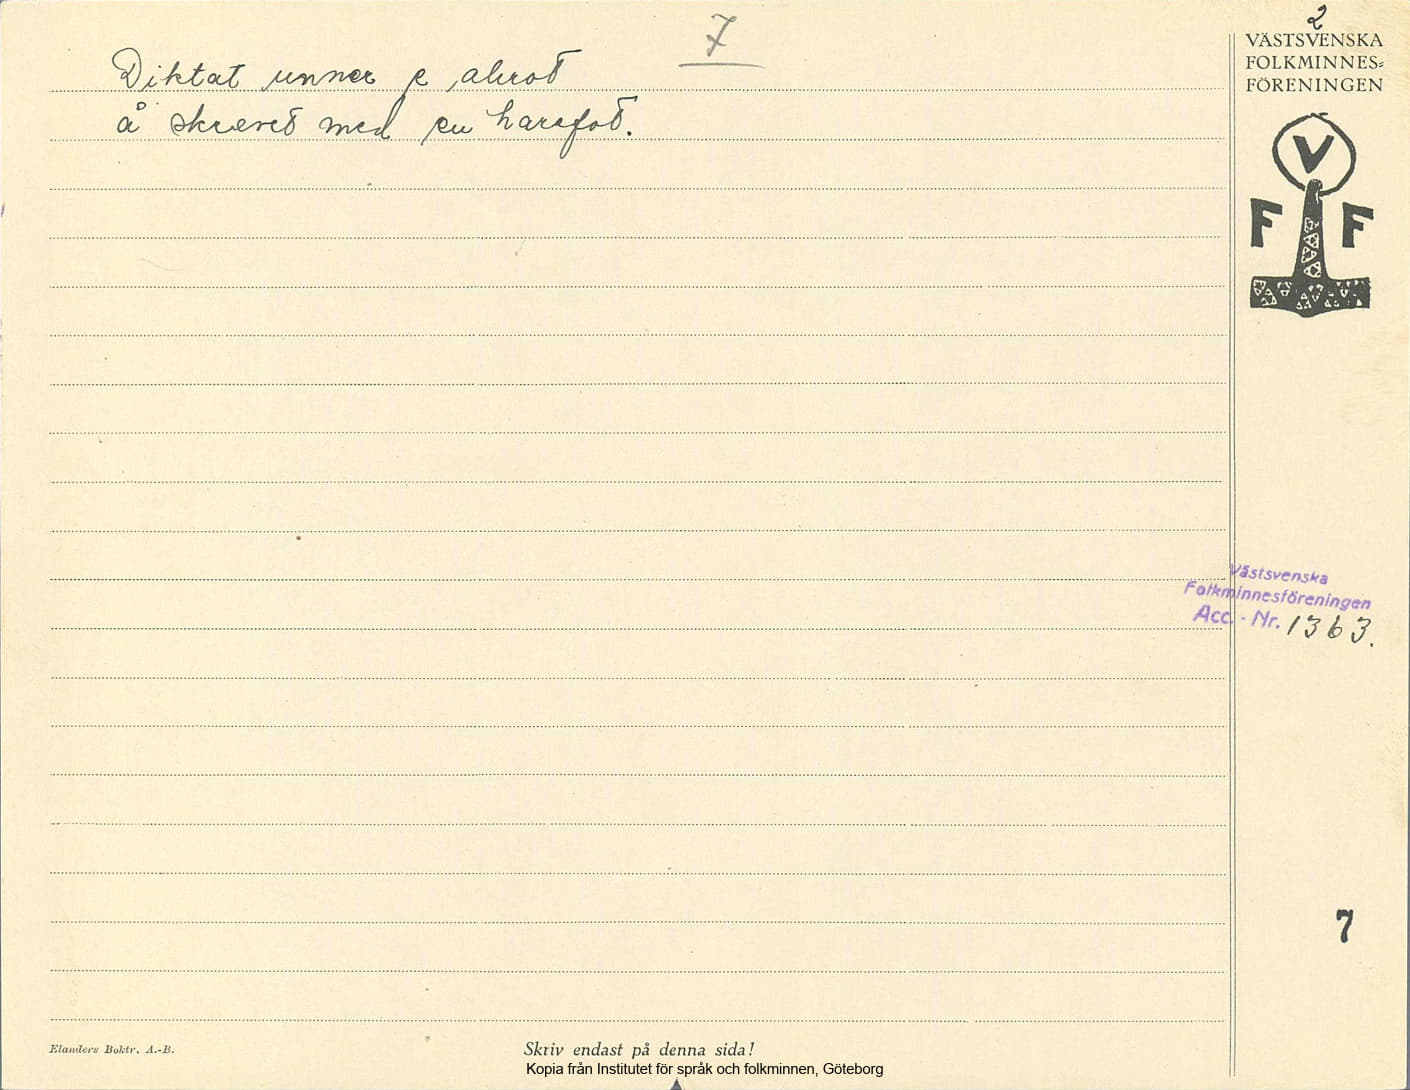 7
2
VÄSTSVENSKA
FOLKMINNES=
FÖRENINGEN
Diktat unner e alerot
å skrevet med en harafot.
V
F F
Västsvenska
Folkminnesföreningen
Acc. - Nr. 1363.
7
Elanders Boktr. A.-B.
Skriv endast på denna sida!
Kopia från Institutet för språk och folkminnen, Göteborg